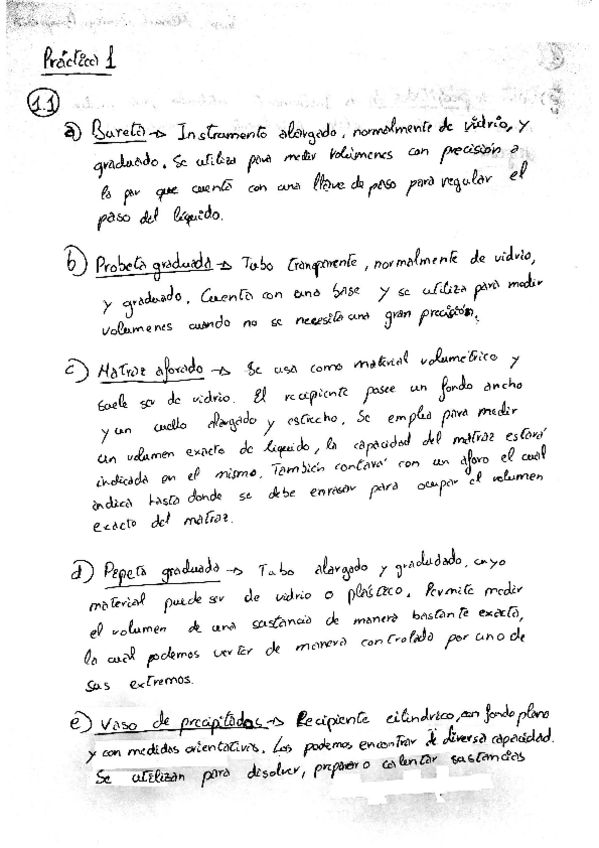 Práctica 1
1.1
a) Bureta → Instrumento alargado, normalmente de vidrio, y
graduado. Se utiliza para medir volúmenes con precisión a
la par que cuenta con una llave de paso para regular el
paso del líquido.
b) Probeta graduada → Tubo transparente, normalmente de vidrio,
y graduado. Cuenta con una base y se utiliza para medir
volumenes cuando no se necesita una gran precisión.
c) Matraz aforado → Se usa como material volumetrico y
suele ser de vidrio. El recipiente posee un fondo ancho
y un cuello alargado y estrecho. Se emplea para medir
un volumen exacto de líquido, la capacidad del matraz estará
indicada en el mismo. También contará con un aforo el cual
indica hasta donde se debe enrasar para ocupar el volumen
exacto del matraz.
d) Pepeta graduada → Tubo alargado y gradudado, cuyo
material puede ser de vidrio o plástico. Permite medir
el volumen de una sustancia de manera bastante exacta,
la cual podemos verter de manera controlada por uno de
sus extremos.
e) Vaso de precipitados → Recipiente cilíndrico, con fondo plano
y con medidas orientativas. Los podemos encontrar de diversa capacidad.
Se utilizan para disolver, preparar o calentar sustancias